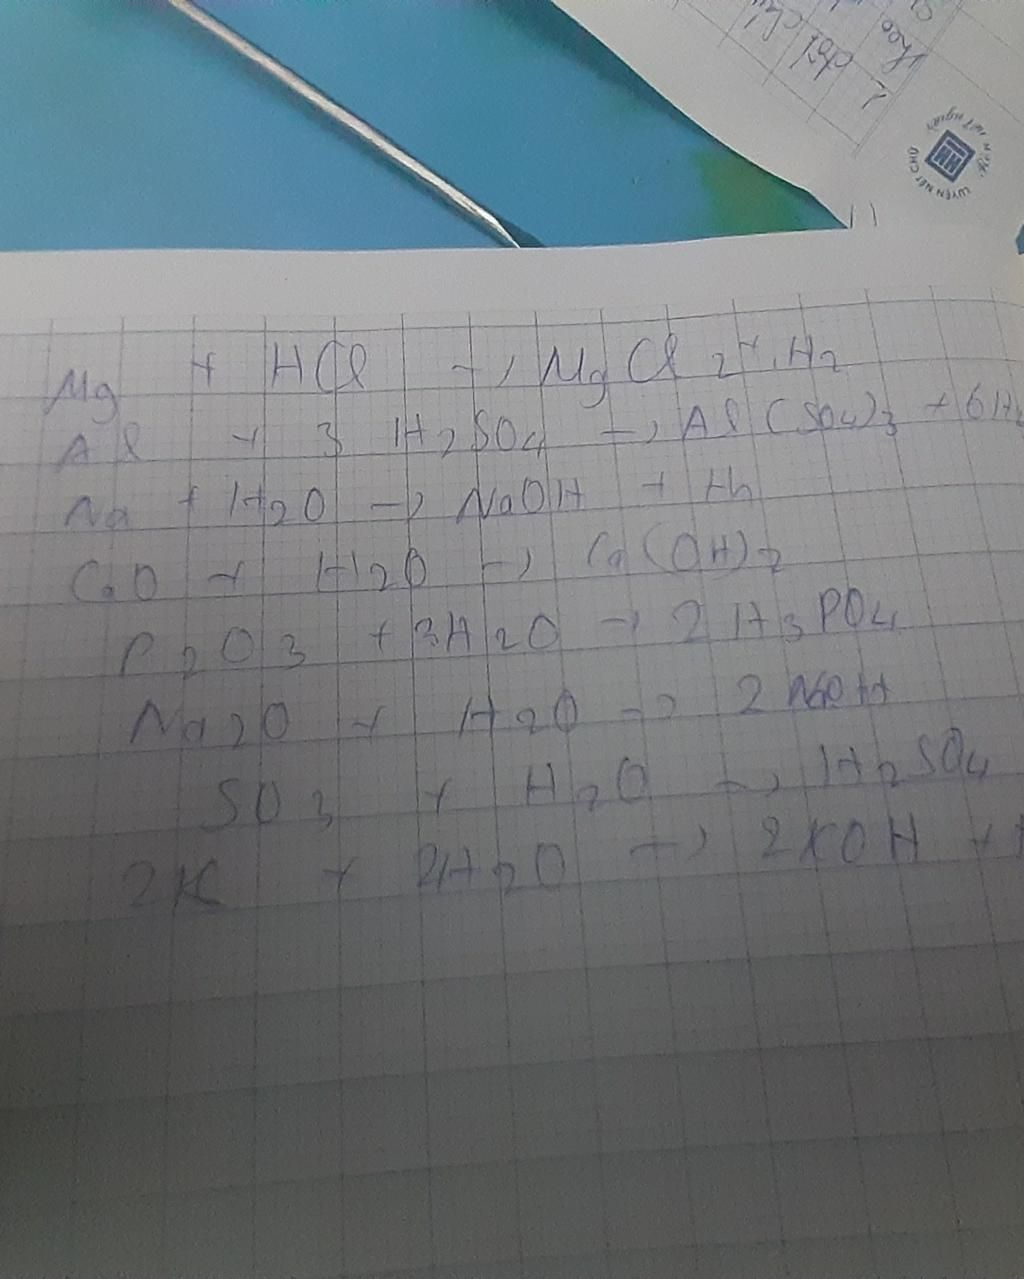 Mg + HCl → MgCl2 + H2
Al + 3 H2SO4 → Al(SO4)3 + 6H
Na + H2O → NaOH + H2
CaO + H2O → Ca(OH)2
P2O3 + 3H2O → 2 H3PO4
Na2O + H2O → 2 NaOH
SO3 + H2O → H2SO4
2K + 2H2O → 2KOH +
LUYỆN NÉT CHỮ